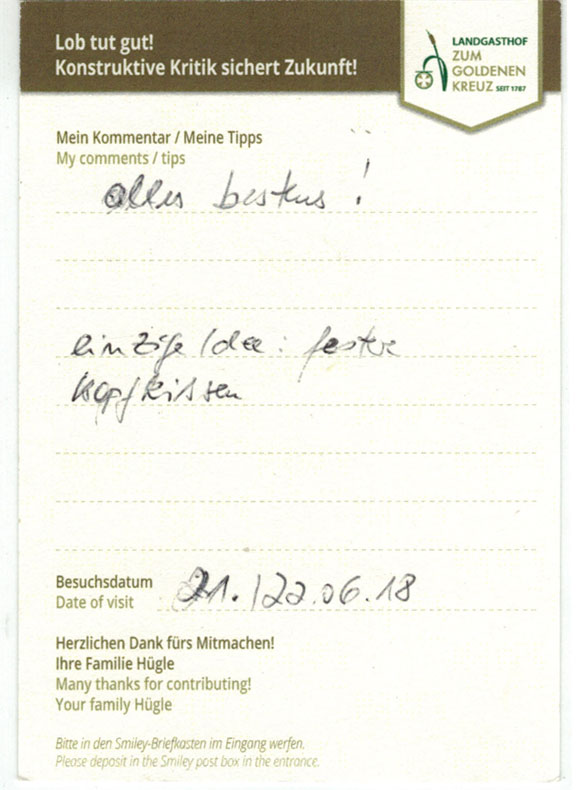 Lob tut gut!
Konstruktive Kritik sichert Zukunft!
LANDGASTHOF
ZUM
GOLDENEN
KREUZ SEIT 1787
Mein Kommentar / Meine Tipps
My comments / tips
alles bestens !
einzige Idee : festere
Kopfkissen
Besuchsdatum
Date of visit
21./22.06.18
Herzlichen Dank fürs Mitmachen!
Ihre Familie Hügle
Many thanks for contributing!
Your family Hügle
Bitte in den Smiley-Briefkasten im Eingang werfen.
Please deposit in the Smiley post box in the entrance.